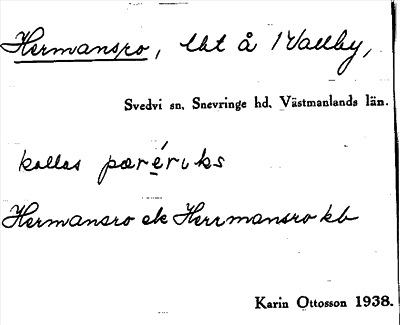 Hermansro, lht å 1 Vallby,
Svedvi sn, Snevringe hd, Västmanlands län.
kallas pærériks
Hermansro ek Herrmansro kb
Karin Ottosson 1938.